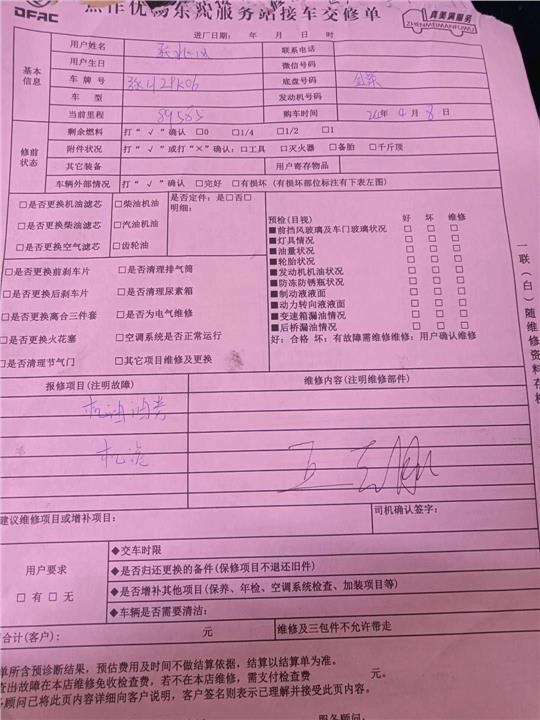 DFAC
焦作优驾东风服务站接车交修单
真美满服务
ZHENMEIMANFUWU
进厂日期: 年 月 日 时
基本信息
用户姓名
联系电话
用户生日
微信号码
车 牌 号
底盘号码
车 型
发动机号码
当前里程 89585
购车时间 年 4 月 8 日
修前状态
剩余燃料 打“√”确认 □0 □1/4 □1/2 □1
附件状况 打“√”或打“×”确认:□工具 □灭火器 □备胎 □千斤顶
其它装备
用户寄存物品
车辆外部情况 打“√”确认 □完好 □有损坏 (有损坏部位标注有下表左图)
□是否更换机油滤芯 □柴油机油
是否定件: 是□否□
明细:
□是否更换柴油滤芯 □汽油机油
□是否更换空气滤芯 □齿轮油
□是否更换前刹车片 □是否清理排气筒
□是否更换后刹车片 □是否清理尿素箱
□是否更换离合三件套 □是否为电气维修
□是否更换火花塞 □空调系统是否正常运行
□是否清理节气门 □其它项目维修及更换
预检(目视) 好 坏 维修
■前挡风玻璃及车门玻璃状况 □ □ □
■灯具情况 □ □ □
■油量状况 □ □ □
■轮胎状况 □ □ □
■发动机机油状况 □ □ □
■防冻防锈瓶状况 □ □ □
■制动液液面 □ □ □
■动力转向液液面 □ □ □
■变速箱漏油情况 □ □ □
■后桥漏油情况 □ □ □
好: 合格 坏: 有故障需维修维修: 用户确认维修
一联(白)随维修资料存档
报修项目(注明故障)
维修内容(注明维修部件)
机滤
建议维修项目或增补项目:
司机确认签字:
用户要求
□ 有 □ 无
◆交车时限
◆是否归还更换的备件(保修项目不退还旧件)
◆是否增补其他项目(保养、年检、空调系统检查、加装项目等)
◆车辆是否需要清洁:
合计(客户): 元
维修及三包件不允许带走
单所含预诊断结果, 预估费用及时间不做结算依据, 结算以结算单为准。
查出故障在本店维修免收检查费, 若不在本店维修, 需支付检查费 元。
务顾问已将此页内容详细向客户说明, 客户签名则表示已理解并接受此页内容。
服务顾问: